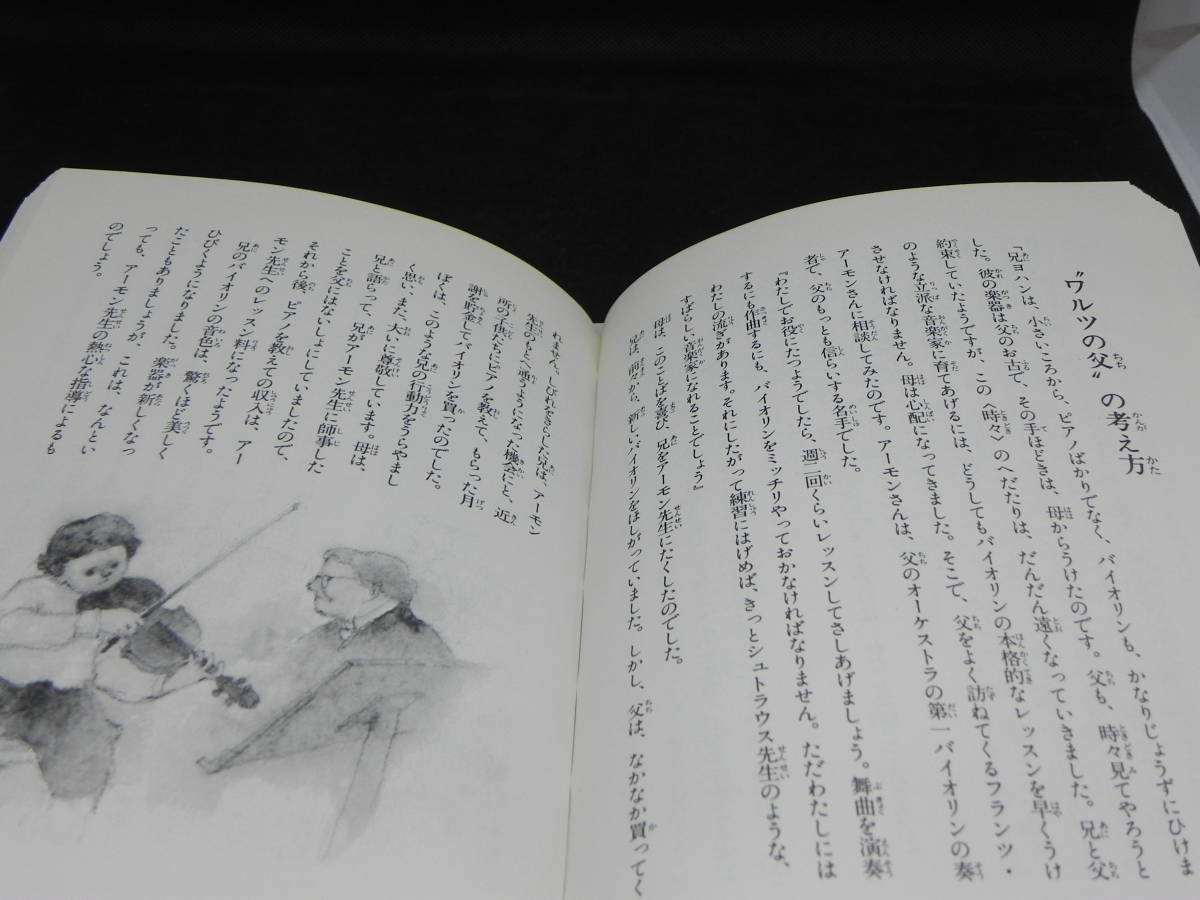 〝ワルツの父〟の考え方
『兄ヨハンは、小さいころから、ピアノばかりでなく、バイオリンも、かなりじょうずにひけま
した。彼の楽器は父のお古で、その手ほどきは、母からうけたのです。父も、時々見てやろうと
約束していたようですが、この〈時々〉のへだたりは、だんだん遠くなっていきました。兄と父
のような立派な音楽家に育てあげるには、どうしてもバイオリンの本格的なレッスンを早くうけ
させなければなりません。母は心配になってきました。そこで、父をよく訪ねてくるフランツ・
アーモンさんに相談してみたのです。アーモンさんは、父のオーケストラの第一バイオリンの奏
者で、父のもっとも信らいする名手でした。
『わたしでお役にたつようでしたら、週二回くらいレッスンしてさしあげましょう。舞曲を演奏
するにも作曲するにも、バイオリンをミッチリやっておかなければなりません。ただわたしには
わたしの流ぎがあります。それにしたがって練習にはげめば、きっとシュトラウス先生のような、
すばらしい音楽家になれることでしょう』
母は、このことばを喜び、兄をアーモン先生にたくしたのでした。
兄は、前々から、新しいバイオリンをほしがっていました。しかし、父は、なかなか買ってく
れません。しびれをきらした兄は、アーモン
先生のもとへ通うようになった機会にと、近
所の子供たちにピアノを教えて、もらった月
謝を貯金してバイオリンを買ったのでした。
ぼくは、このような兄の行動力をうらやまし
く思い、また、大いに尊敬しています。母は、
兄と語らって、兄がアーモン先生に師事した
ことを父にはないしょにしていましたので、
それから後、ピアノを教えての収入は、アー
モン先生へのレッスン料になったようです。
兄のバイオリンの音色は、驚くほど美しく
ひびくようになりました。楽器が新しくなっ
たこともありましょうが、これは、なんとい
っても、アーモン先生の熱心な指導によるも
のでしょう。